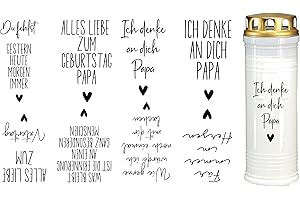 Du fehlst
GESTERN
HEUTE
MORGEN
IMMER
ALLES LIEBE
ZUM
Vatertag
ALLES LIEBE
ZUM
GEBURTSTAG
PAPA
WAS BLEIBT
IST DIE ERINNERUNG
AN EINEN
GANZ BESONDEREN
MENSCHEN
Ich denke
an dich
Papa
Wie gerne
würde ich
noch einmal
mit dir
ICH DENKE
AN DICH
PAPA
Für
immer
im
Herzen
Ich denke
an dich
Papa